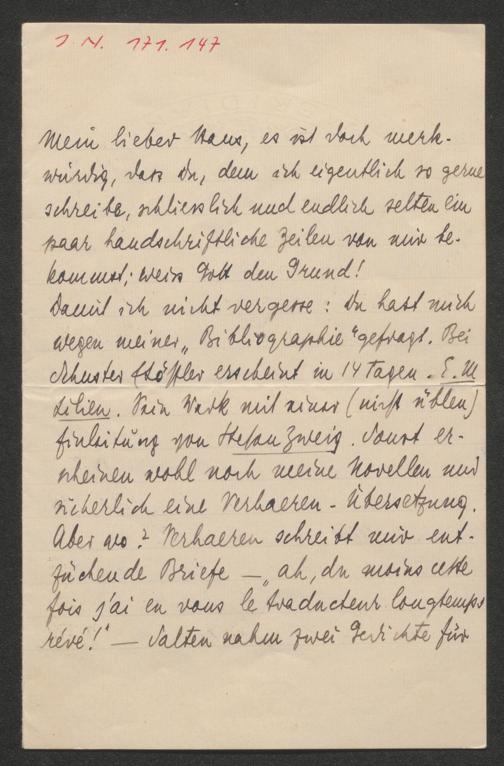 J. N. 171.147
Mein lieber Hans, es ist doch merk-
würdig, dass Du, dem ich eigentlich so gerne
schreibe, schliesslich und endlich selten ein
paar handschriftliche Zeilen von mir be-
kommst; weiss Gott den Grund!
Damit ich nicht vergesse: Du hast mich
wegen meiner „Bibliographie" gefragt. Bei
Schuster & Löffler erscheint in 14 Tagen - E. M
Lilien. Sein Werk mit einer (nicht üblen)
Einleitung von Stefan Zweig. Sonst er-
scheinen wohl noch meine Novellen und
sicherlich eine Verhaeren-Übersetzung.
Aber wo? Verhaeren schreibt mir ent-
zückende Briefe — „ah, du moins cette
fois j'ai en vous le traducteur longtemps
rêvé!" — Salten nahm zwei Gedichte für